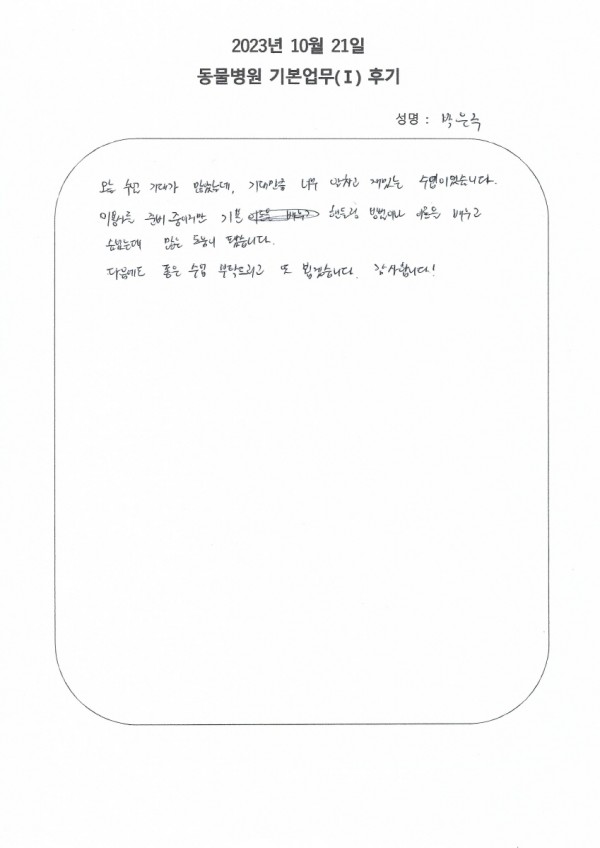 2023년 10월 21일
동물병원 기본업무(Ⅰ) 후기
성명 : 박은주
오늘 기대가 많았는데, 기대만큼 너무 알차고 재밌는 수업이었습니다.
미용사를 준비 중이지만 기본 핸들링 방법이나 이론을 배우고
실습는데 많은 도움이 됐습니다.
다음에도 좋은 수업 부탁드리고 또 뵙겠습니다. 감사합니다!